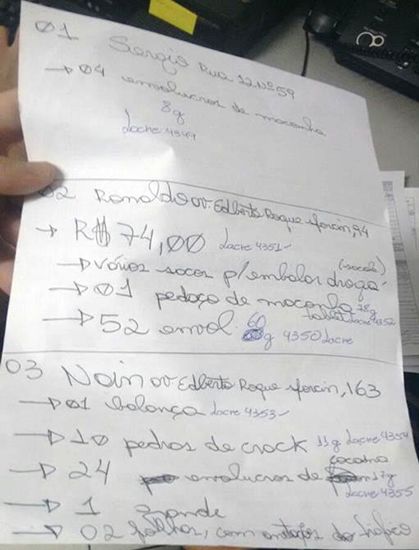 01 Sergio Rua 12 Nº 59
→ 04 envolucros de maconha
8g
lacre 4349
02 Ronaldo Av. Edberto Roque 94
→ R$ 74,00 lacre 4351
→ vários sacos p/embalar droga (sacolé)
→ 01 pedaço de maconha 78g lacre 4352
→ 52 envol. 60g 4350 lacre
03 Nain Av Edberto Roque 163
→ 01 balança lacre 4353
→ 10 pedras de crack 11g lacre 4354
→ 24 envolucros de cocaina 17g
lacre 4355
→ 1
→ 02 folhas, com do tráfico